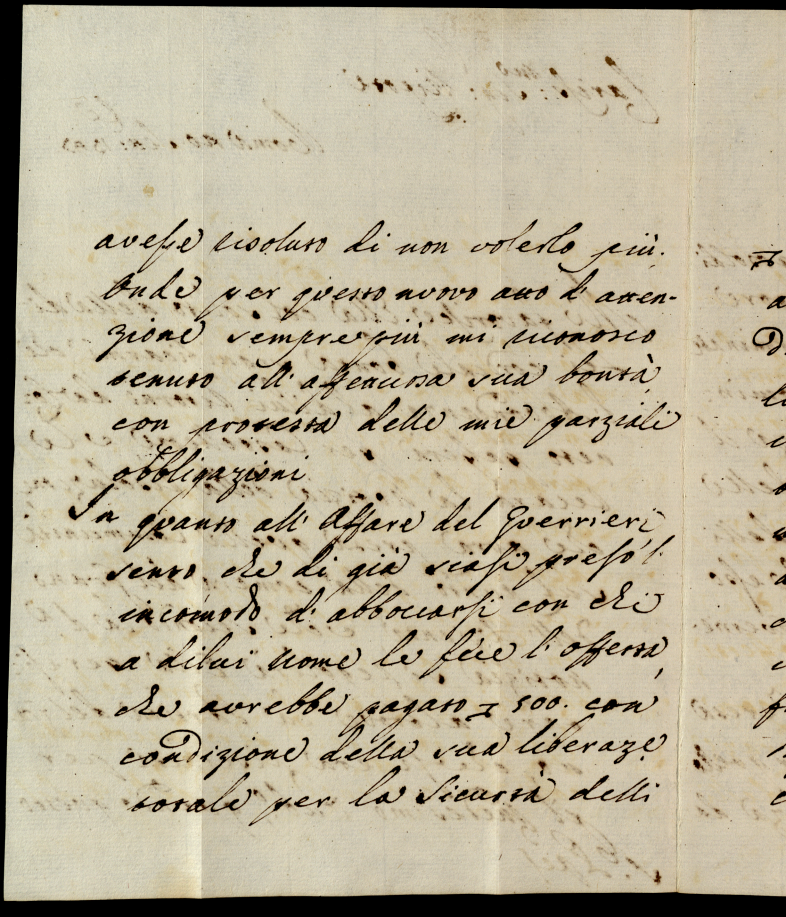 avesse risoluto di non volerlo più.
Onde per questo nuovo atto d'atten-
zione sempre più mi riconosco
tenuto all'affettuosa sua bontà,
con protesta delle mie parziali
obbligazioni
In quanto all'Affare del Guerrieri
sento che di già siasi preso l'
incomodo d'abboccarsi con chi
a dilui nome le fece l'offerta,
che avrebbe pagato 500. con
condizione della sua liberaz.e
totale per la Sicurtà delli